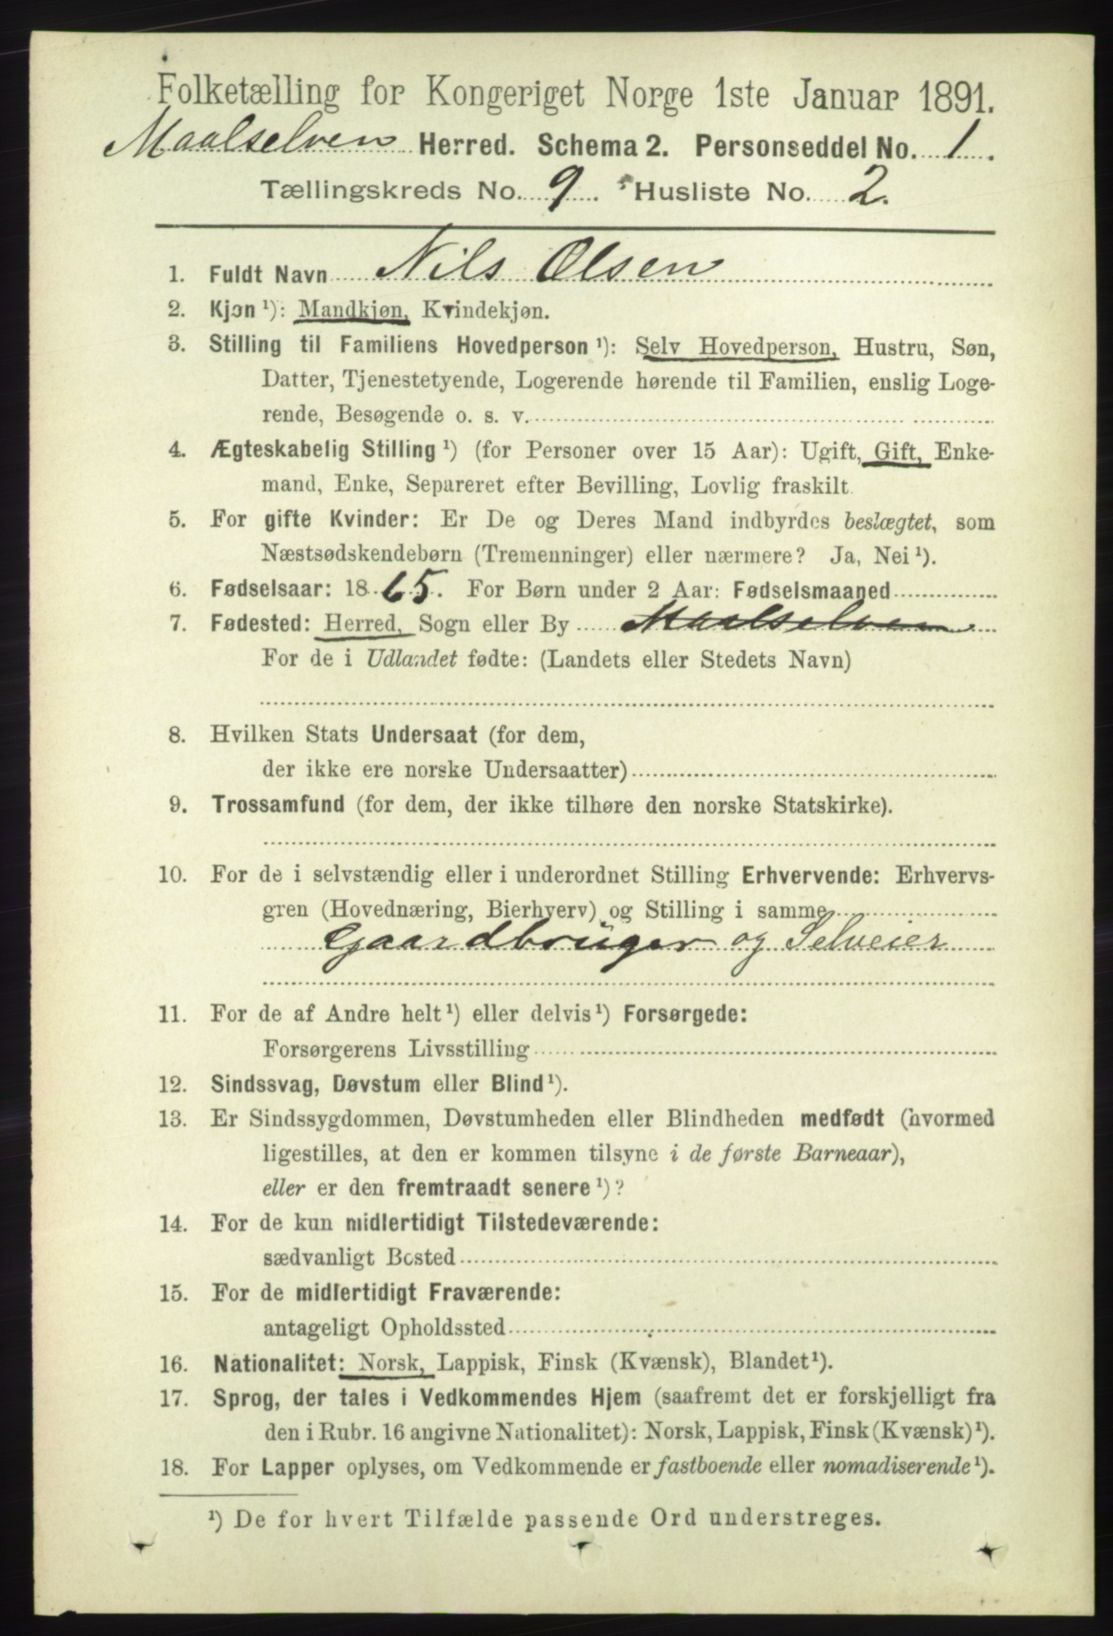 Folketælling for Kongeriget Norge 1ste Januar 1891.
Maalselven Herred. Schema 2. Personseddel No. 1.
Tællingskreds No. 9. Husliste No. 2.
1. Fuldt Navn Nils Olsen
2. Kjøn ¹): Mandkjøn, Kvindekjøn.
3. Stilling til Familiens Hovedperson ¹): Selv Hovedperson, Hustru, Søn,
Datter, Tjenestetyende, Logerende hørende til Familien, enslig Loge-
rende, Besøgende o. s. v.
4. Ægteskabelig Stilling ¹) (for Personer over 15 Aar): Ugift, Gift, Enke-
mand, Enke, Separeret efter Bevilling, Lovlig fraskilt
5. For gifte Kvinder: Er De og Deres Mand indbyrdes beslægtet, som
Næstsødskendebørn (Tremenninger) eller nærmere? Ja, Nei ¹).
6. Fødselsaar: 1865. For Børn under 2 Aar: Fødselsmaaned
7. Fødested: Herred, Sogn eller By Maalselven
For de i Udlandet fødte: (Landets eller Stedets Navn)
8. Hvilken Stats Undersaat (for dem,
der ikke ere norske Undersaatter)
9. Trossamfund (for dem, der ikke tilhøre den norske Statskirke).
10. For de i selvstændig eller i underordnet Stilling Erhvervende: Erhvervs-
gren (Hovednæring, Bierhverv) og Stilling i samme
Gaardbrüger og Selveier
11. For de af Andre helt ¹) eller delvis ¹) Forsørgede:
Forsørgerens Livsstilling
12. Sindssvag, Døvstum eller Blind ¹).
13. Er Sindssygdommen, Døvstumheden eller Blindheden medfødt (hvormed
ligestilles, at den er kommen tilsyne i de første Barneaar),
eller er den fremtraadt senere ¹)?
14. For de kun midlertidigt Tilstedeværende:
sædvanligt Bosted
15. For de midlertidigt Fraværende:
antageligt Opholdssted
16. Nationalitet: Norsk, Lappisk, Finsk (Kvænsk), Blandet ¹).
17. Sprog, der tales i Vedkommendes Hjem (saafremt det er forskjelligt fra
den i Rubr. 16 angivne Nationalitet): Norsk, Lappisk, Finsk (Kvænsk) ¹).
18. For Lapper oplyses, om Vedkommende er fastboende eller nomadiserende ¹).
¹) De for hvert Tilfælde passende Ord understreges.